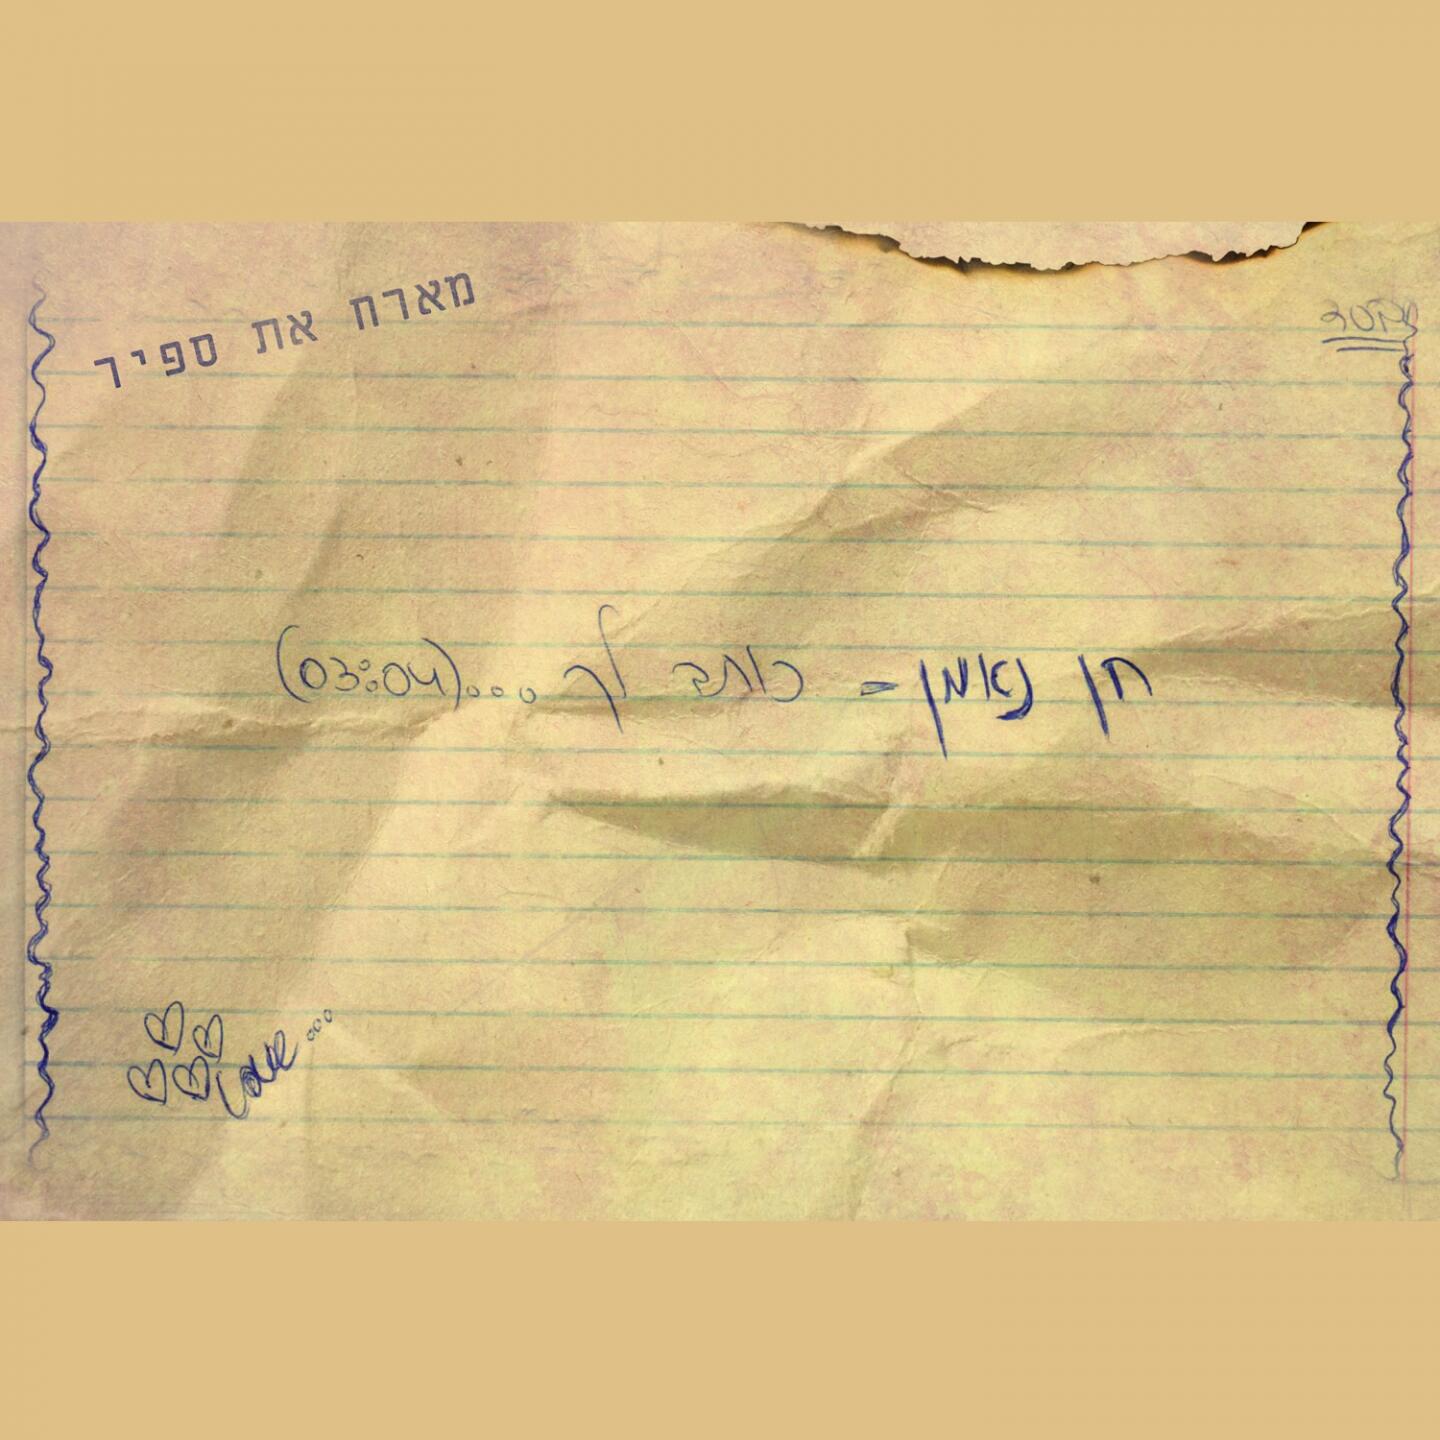 מארח את ספיר
חן נאמן - כותב לך ...(03:04)
Love...